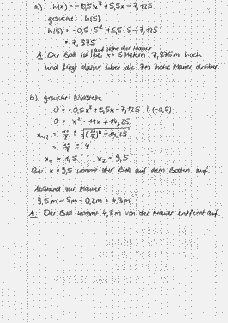 a) h(x) = -0,5x² + 5,5x - 7,125
gesucht: h(5)
h(5) = -0,5 · 5² + 5,5 · 5 - 7,125
= 7,875
A: Der Ball ist bei x = 5 Metern 7,875m hoch
und fliegt daher über die 7m hohe Mauer drüber.
b) gesucht: Nullstellen
0 = -0,5x² + 5,5x - 7,125 | : (-0,5)
0 = x² - 11x + 14,25
= 4
x₁ = 1,5 x₂ = 9,5
Bei x = 9,5 kommt der Ball auf dem Boden auf.
Abstand zur Mauer
9,5m - 5m - 0,2m = 4,3m
A: Der Ball kommt 4,3m von der Mauer entfernt auf.